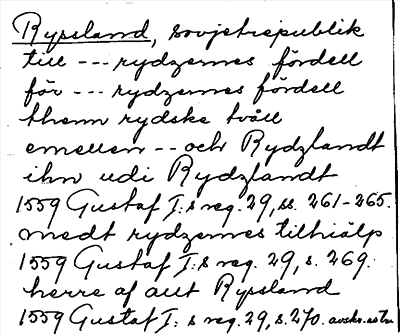 Ryssland, sovjetrepublik
till --- rydzernes fördell
för --- rydzernes fördell
themn rydske tvåll
emellem -- och Rydzlandt
ihn udi Rydzlandt
1559 Gustaf I:s reg. 29, ss. 261-265.
medt rydzernes tilhiälp
1559 Gustaf I:s reg. 29, s. 269.
herre af alt Ryssland
1559 Gustaf I:s reg. 29, s. 270.